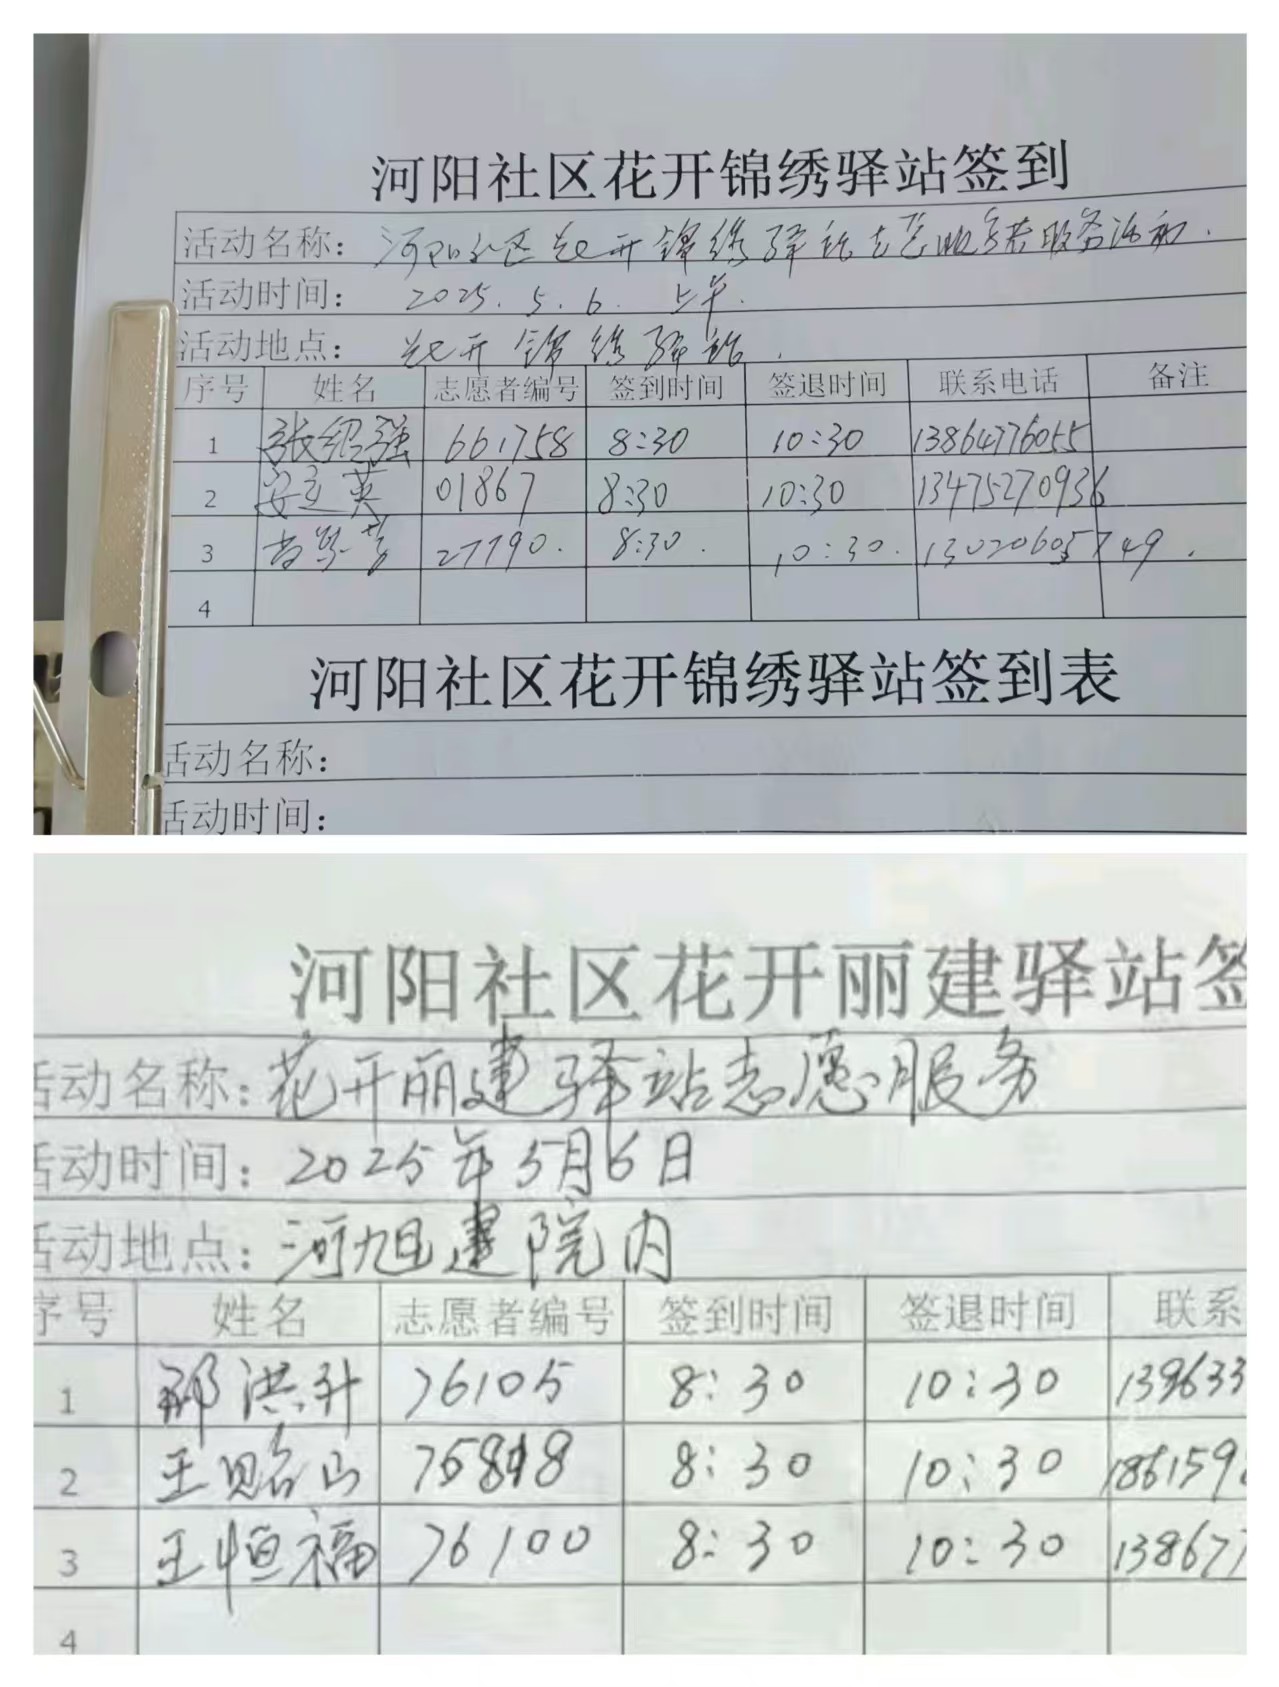 河阳社区花开锦绣驿站签到
活动名称：河阳社区花开锦绣驿站志愿服务活动.
活动时间： 2025. 5. 6. 上午.
活动地点： 花开锦绣驿站.
序号 姓名 志愿者编号 签到时间 签退时间 联系电话 备注
1 张绍强 661758 8:30 10:30 13864776055
2 安立英 01867 8:30 10:30 13475270936
3 27790. 8:30. 10:30. 13020605749.
4
河阳社区花开锦绣驿站签到表
活动名称：
活动时间：
河阳社区花开丽建驿站签
活动名称：花开丽建驿站志愿服务
活动时间：2025年5月6日
活动地点：河旭建院内
序号 姓名 志愿者编号 签到时间 签退时间 联系
1 邢洪升 76105 8:30 10:30 139633
2 王贻山 8:30 10:30 186159
3 王恒福 76100 8:30 10:30 138677
4